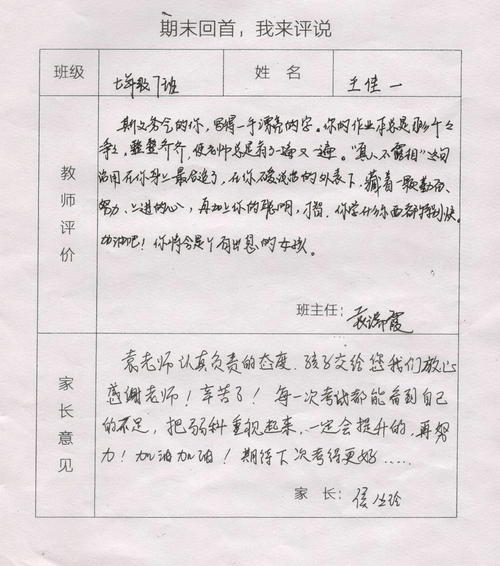 期末回首，我来评说
班级 七年级7班 姓名 王佳一
教师评价
斯文秀气的你，写得一手漂亮的字。你的作业本总是那么干干
净净，整整齐齐，使老师总是看了一遍又一遍。"真人不露相"这句
话用在你身上最合适了，在你不爱说话的外表下，藏着一颗勤奋、
努力、上进的心，再加上你的聪明，你学什么东西都特别快。
加油吧！你将会是个有出息的女孩。
班主任：袁瑞霞
家长意见
袁老师认真负责的态度，孩子交给您我们放心
感谢老师！辛苦了！每一次考试都能看到自己
的不足，把弱科重视起来，一定会提升的，再努
力！加油加油！期待下次考得更好……
家长：侯丛玲